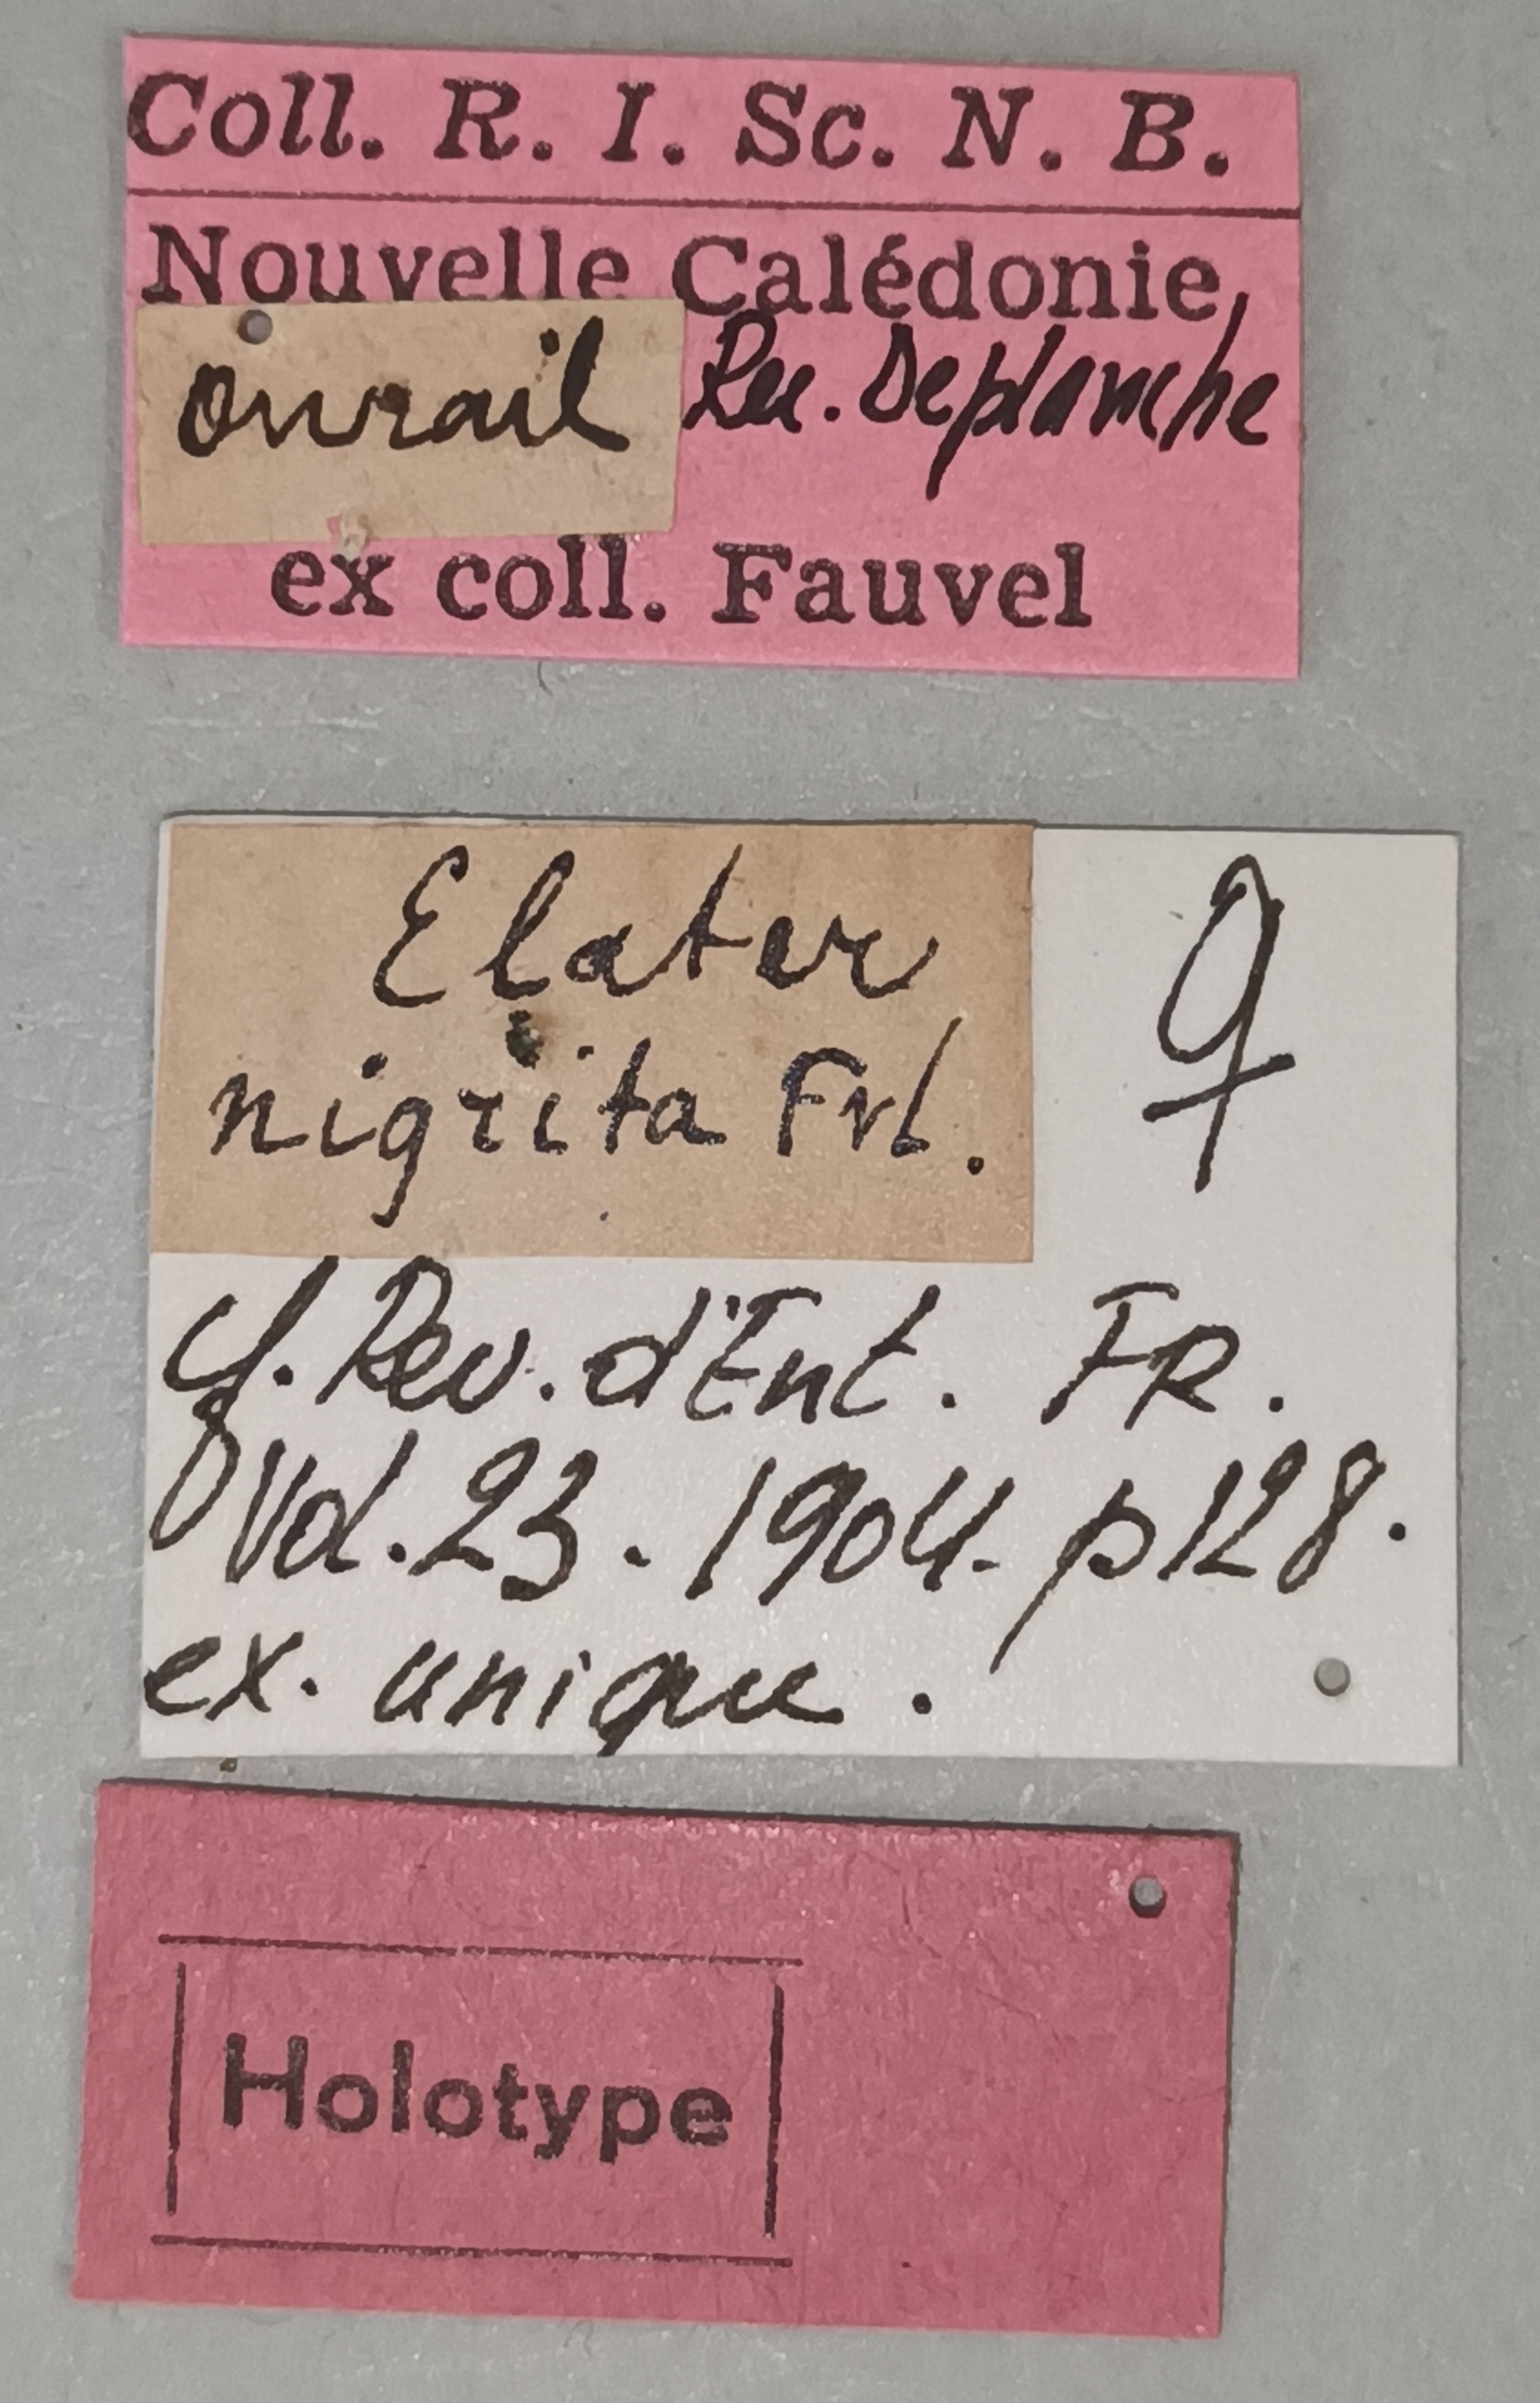 Coll. R. I. Sc. N. B.
Nouvelle Calédonie
Ourail Rec. Deplanche
ex coll. Fauvel
Elater ♀
nigrita Fvl.
cf. Rev. d'Ent. FR.
Vol. 23. 1904. p128.
ex. unique.
Holotype